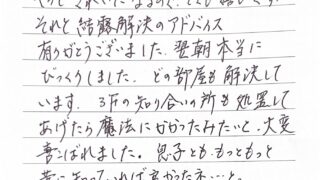 それと結露解決のアドバイス
有りがとうございました。翌朝本当に
びっくりしました。どの部屋も解決して
います。3Fの知り合いの所も処置して
あげたら魔法にかかったみたいと、大変
喜ばれました。息子とも、もっともっと
昔に知っていれば良かったネ…と。